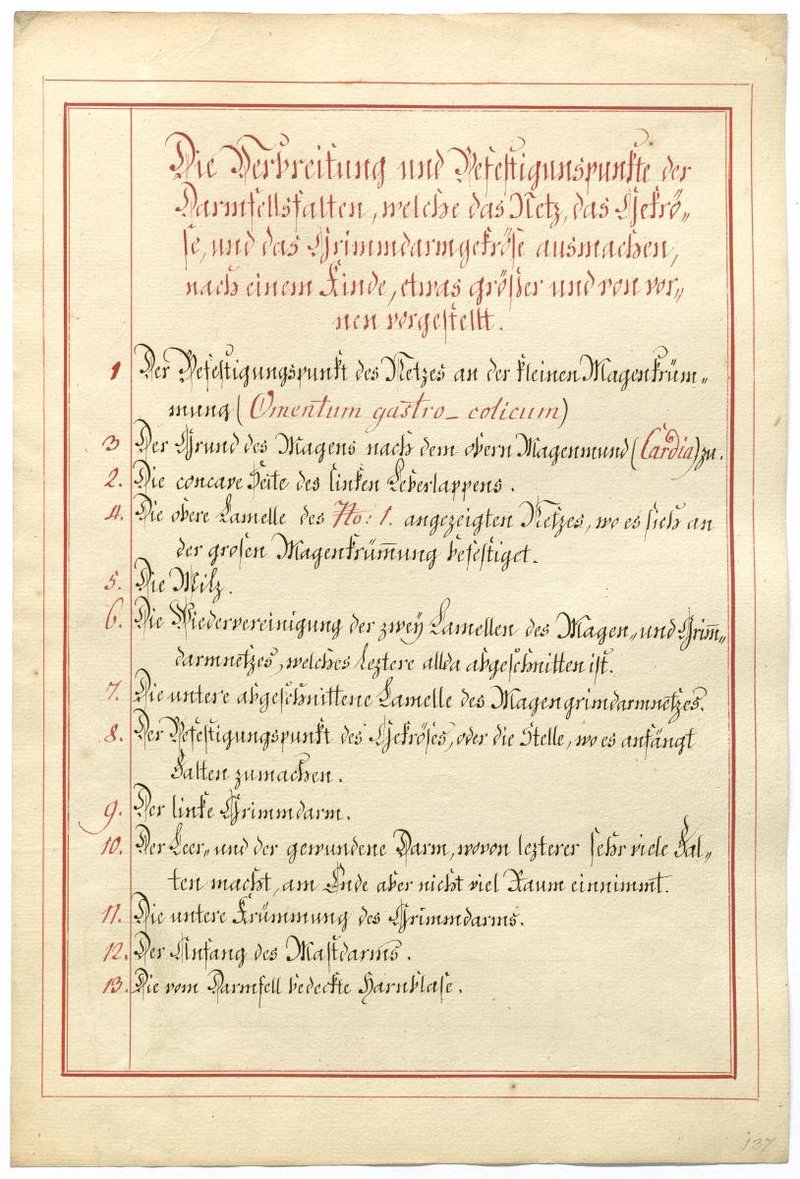 Die Verbreitung und Befestigunspunkte der
Darmfellsfalten, welche das Netz, das Gekrö„
se, und das Grimmdarmgekröse ausmachen,
nach einem Kinde, etwas größer und von vor„
nen vorgestellt.
1 Der Befestigungspunkt des Netzes an der kleinen Magenkrüm„
mung (Omentum gastro-colicum)
3 Der Grund des Magens nach dem obern Magenmund (Cardia) zu.
2. Die concave Seite des linken Leberlappens.
4. Die obere Lamelle des No: 1. angezeigten Netzes, wo es sich an
der grosen Magenkrüm̄ung befestiget.
5. Die Milz.
6. Die Wiedervereinigung der zwey Lamellen des Magen„ und Grim̄„
darmnetzes, welches leztere allda abgeschnitten ist.
7. Die untere abgeschnittene Lamelle des Magengrimdarmnetzes.
8. Der Befestigungspunkt des Gekröses, oder die Stelle, wo es anfängt
Falten zumachen.
9. Der linke Grimmdarm.
10. Der Leer„ und der gewundene Darm, wovon lezterer sehr viele Fal„
ten macht, am Ende aber nicht viel Raum einnimmt.
11. Die untere Krümmung des Grimmdarms.
12. Der Anfang des Mastdarms.
13. Die vom Darmfell bedeckte Harnblase.
137